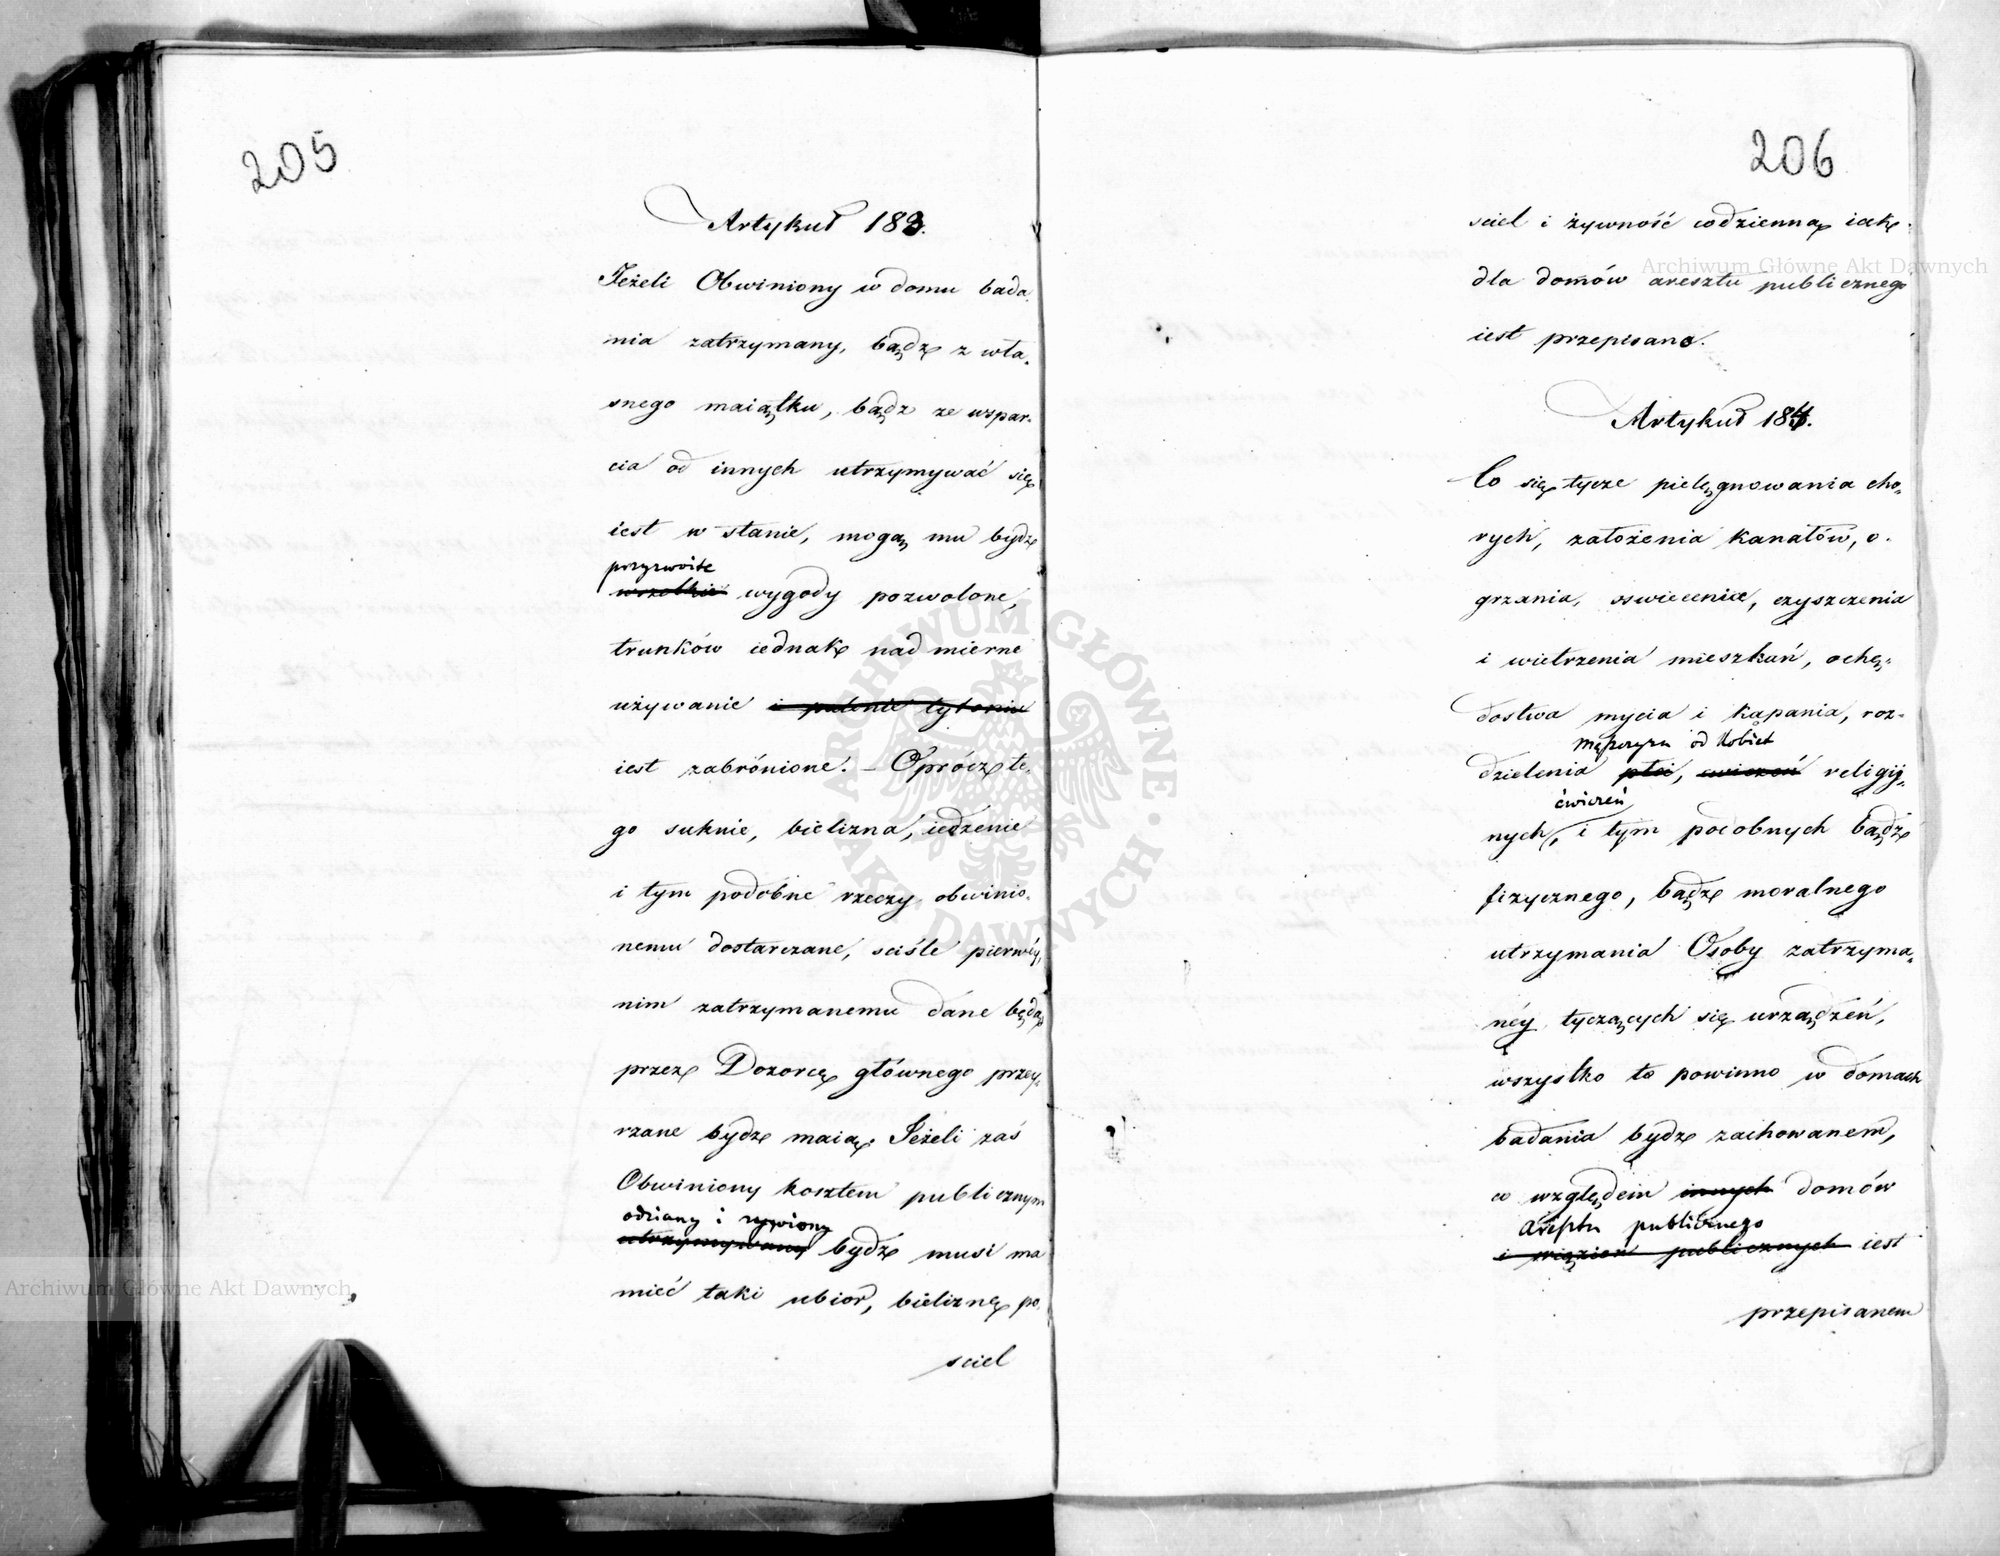 205
Artykuł 183.
Jeżeli Obwiniony w domu bada-
nia zatrzymany, bądz z wła-
snego maiątku, bądz ze wspar-
cia od innych utrzymywać się
iest w stanie, mogą mu bydz
przyzwoite
wszelkie wygody pozwolone,
trunków iednak nad mierne
używanie i palenie tytoniu
iest zabrónione. – Oprócz te-
go suknie, bielizna, iedzenie
i tym podobne rzeczy obwinio-
nemu dostarczane, sciśle pierwéy,
nim zatrzymanemu dane będą
przez Dozorcę głównego przey-
rzane bydz maią. Jeżeli zaś
Obwiniony kosztem publicznym
odziany i żywiony
utrzymywany bydz musi ma
mieć taki ubior, bieliznę po-
sciel
206
sciel i żywność codzienną iak
dla domów aresztu publicznego
iest przepisano.
Artykuł 184.
Co się tycze pielęgnowania cho-
rych, założenia kanałów, o-
grzania, oswiecenia, czyszczenia
i wietrzenia mieszkań, ochę-
dostwa mycia i kąpania, roz-
męszczyzn od Kobiet
dzielenia płci, cwiczeń religiy-
ćwiczeń
nych, i tym podobnych bądz
fizycznego, bądz moralnego
utrzymania Osoby zatrzyma-
néy tyczących się urządzeń,
wszystko to powinno w domach
badania bydz zachowanem,
co względem innych domów
aresztu publicznego
i więzień publicznych iest
przepisanem
Archiwum Główne Akt Dawnych
Archiwum Główne Akt Dawnych
ARCHIWUM GŁÓWNE AKT DAWNYCH